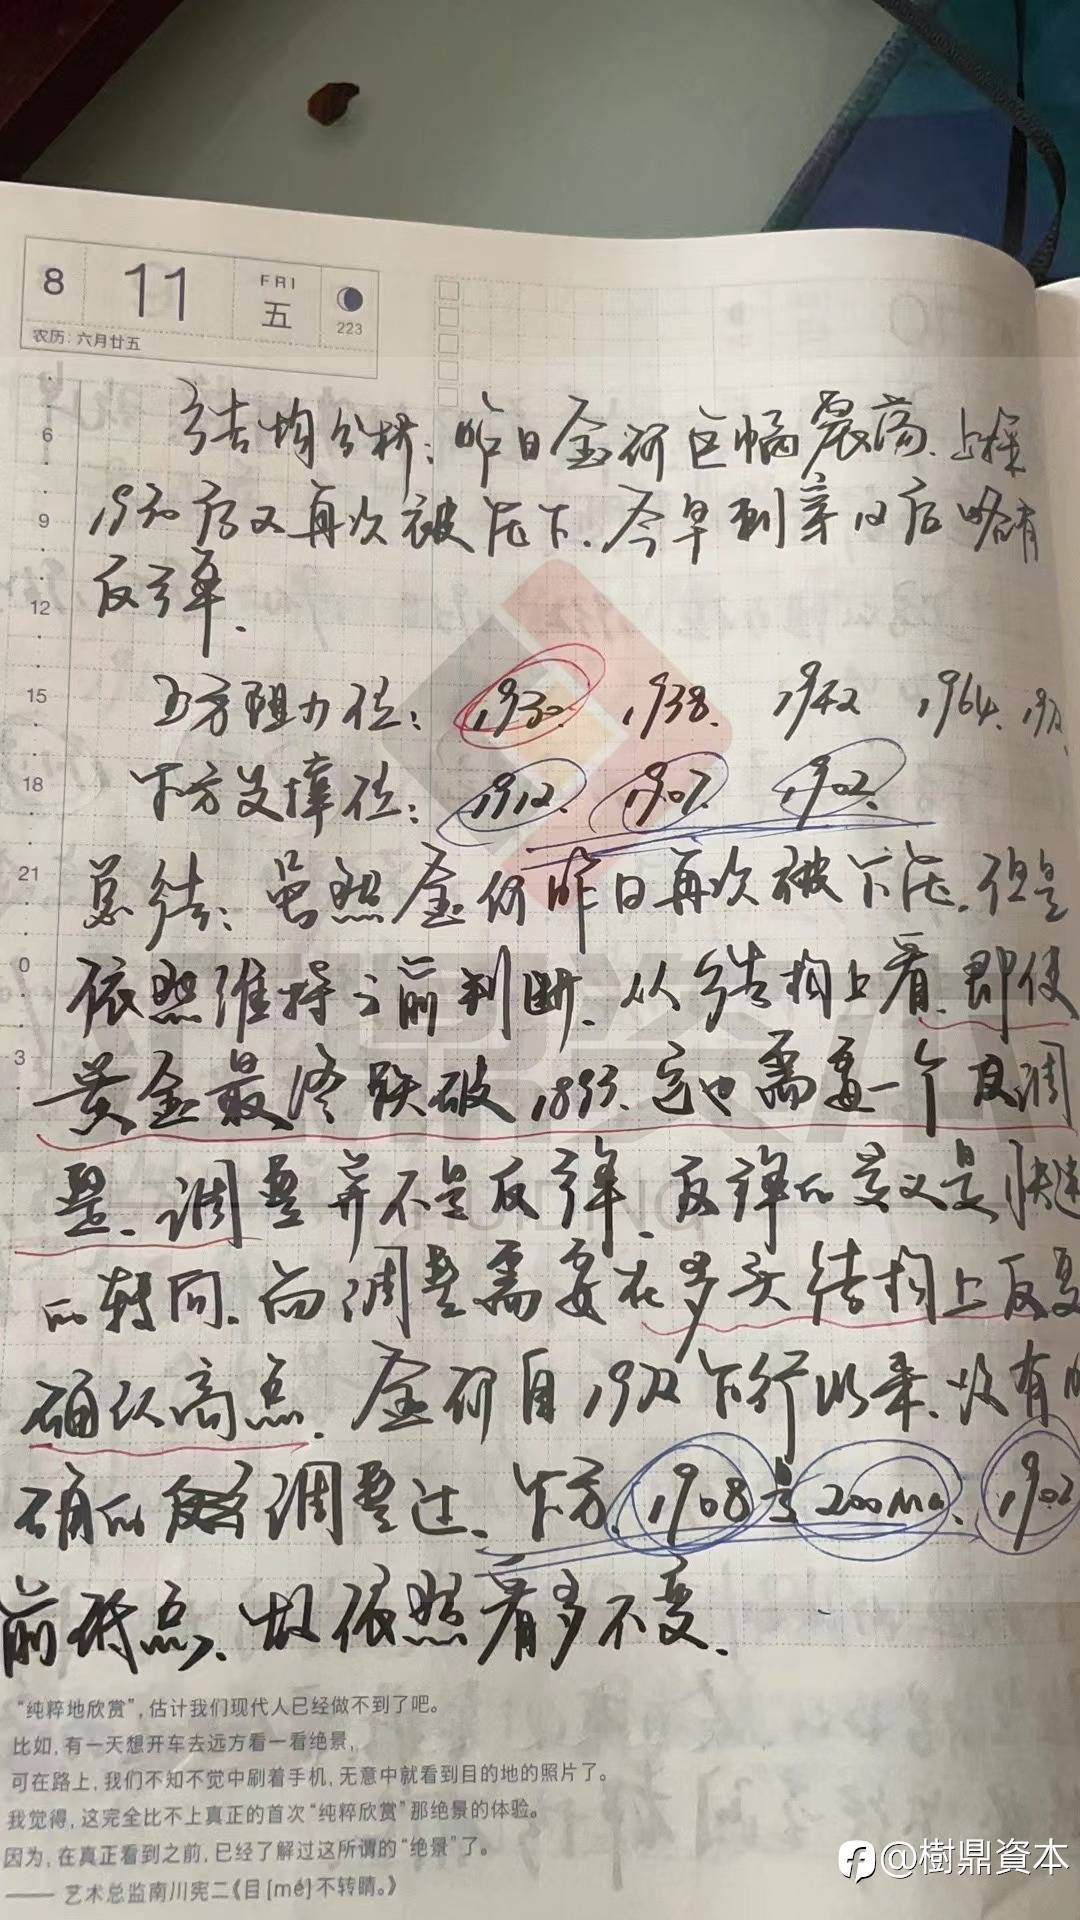 8 11 FRI 五 223
农历: 六月廿五
6
9
12
15
18
21
0
3
结构分析: 昨日金价巨幅震荡. 上探
1930后又再次被砸下. 今早到
后略有
反弹.
上方阻力位: 1930. 1938. 1942 1964.
下方支撑位: 1912. 1907. 1902.
总结: 虽然金价昨日再次被下砸. 但是
依照维持之前判断. 从结构上看. 即使
黄金最终跌破1893. 它也需要一个反调
整. 调整并不是反弹. 反弹的意义是快速
的转向. 而调整需要在多头结构上反复
确认高点. 金价自
下行以来. 没有
确的
调整过. 下方. 1908与200ma. 1902
前低点. 故依照看多不变.
“纯粹地欣赏”, 估计我们现代人已经做不到了吧。
比如, 有一天想开车去远方看一看绝景,
可在路上, 我们不知不觉中刷着手机, 无意中就看到目的地的照片了。
我觉得, 这完全比不上真正的首次“纯粹欣赏”那绝景的体验。
因为, 在真正看到之前, 已经了解过这所谓的“绝景”了。
—— 艺术总监南川宪二《目[mé]不转睛。》
@樹鼎資本